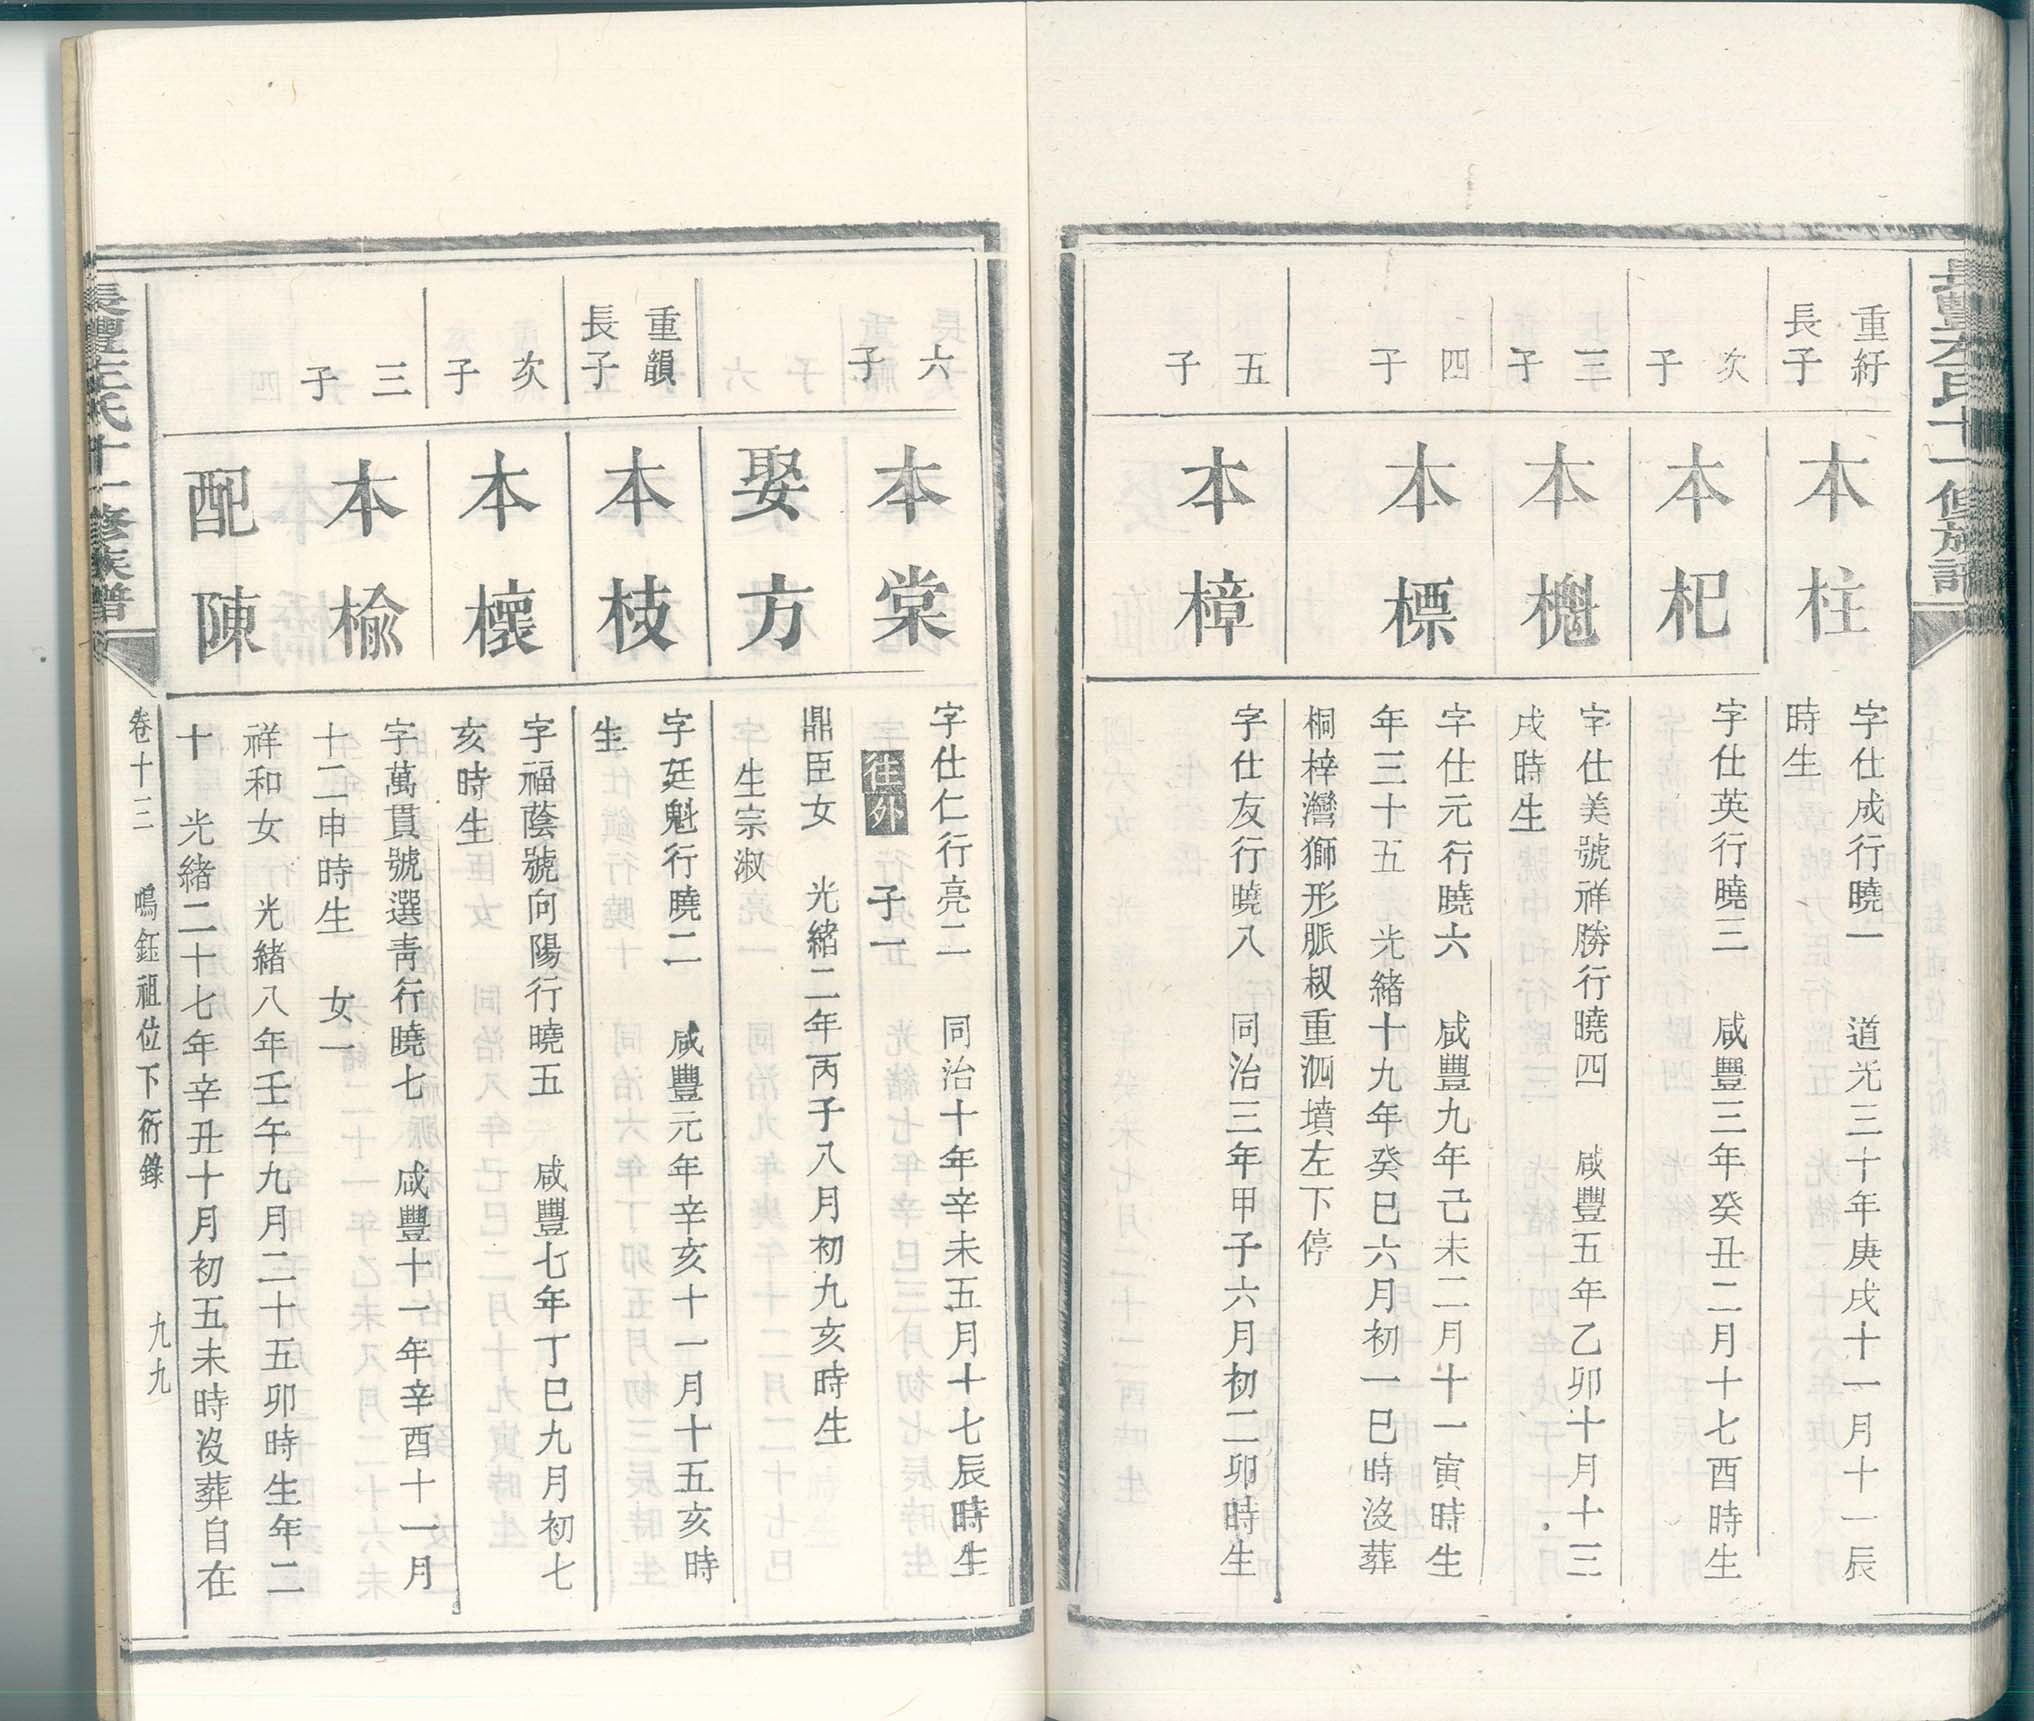 重紆
長子
本柱
字仕成行曉一　道光三十年庚戌十一月十一辰
時生
次子
本杞
字仕英行曉三　咸豐三年癸丑二月十七酉時生
三子
本槐
字仕美號祥勝行曉四　咸豐五年乙卯十月十三
戌時生
四子
本標
字仕元行曉六　咸豐九年己未二月十一寅時生
年三十五　光緒十九年癸巳六月初一巳時沒葬
桐梓灣獅形脈叔重泗墳左下停
五子
本樟
字仕友行曉八　同治三年甲子六月初二卯時生
六子
本棠
字仕仁行亮二　同治十年辛未五月十七辰時生
往外　子一
娶方
鼎臣女　光緒二年丙子八月初九亥時生
生宗淑
重韻
長子
本枝
字廷魁行曉二　咸豐元年辛亥十一月十五亥時
生
次子
本櫰
字福蔭號向陽行曉五　咸豐七年丁巳九月初七
亥時生
三子
本榆
字萬貫號選靑行曉七　咸豐十一年辛酉十一月
十二申時生　女一
配陳
祥和女　光緒八年壬午九月二十五卯時生年二
十　光緒二十七年辛丑十月初五未時沒葬自在
卷十三　鳴鈺祖位下衍錄　九九